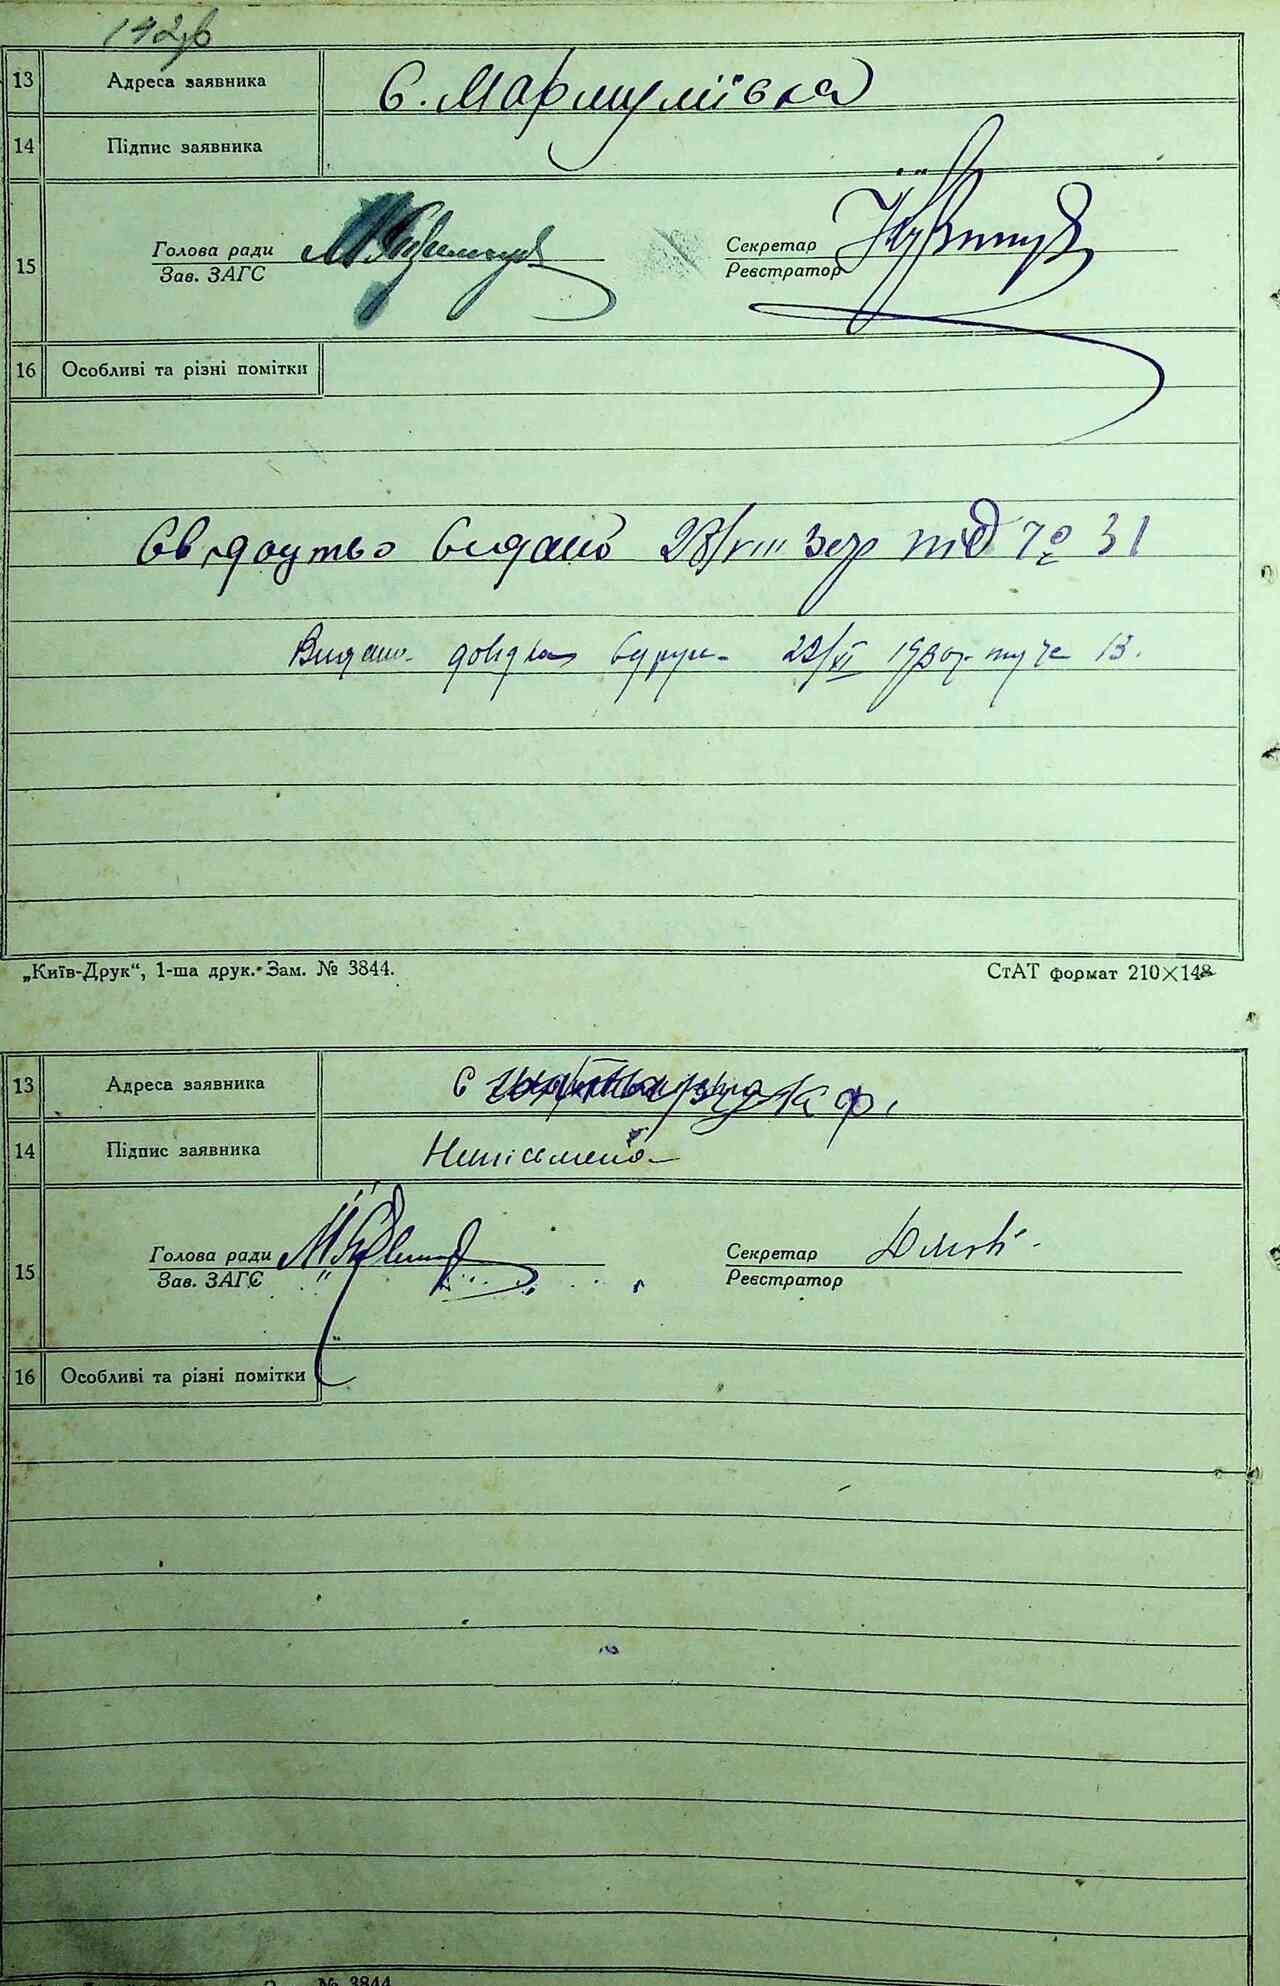 13 Адреса заявника С. Мармуліївка
14 Підпис заявника
15 Голова ради Секретар
Зав. ЗАГС Реєстратор
16 Особливі та різні помітки
Свідоцтво видано 28/VIII 30р під № 31
Видано довідка 22/XI 1930р. № 13.
„Київ-Друк“, 1-ша друк. Зам. № 3844. СтАТ формат 210×148
13 Адреса заявника С
14 Підпис заявника Неписьмена
15 Голова ради Секретар
Зав. ЗАГС Реєстратор
16 Особливі та різні помітки
№ 3844